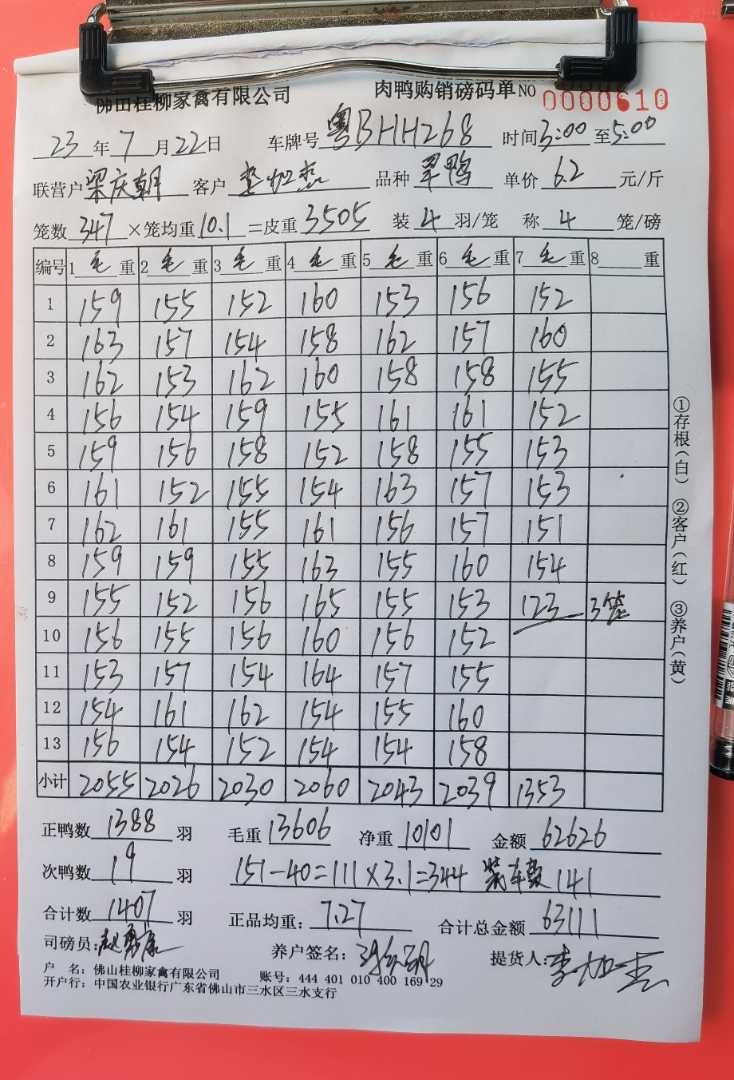 佛山桂柳家禽有限公司 肉鸭购销磅码单 NO 0000610
23 年 7 月 22 日 车牌号 粤BHH268 时间 3:00 至 5:00
联营户 梁庆朝 客户 李加杰 品种 单价 6.2 元/斤
笼数 347 ×笼均重 10.1 =皮重 3505 装 4 羽/笼 称 4 笼/磅
编号 1 毛 重 2 毛 重 3 毛 重 4 毛 重 5 毛 重 6 毛 重 7 毛 重 8 重
1 159 155 152 160 153 156 152
2 163 157 154 158 162 157 160
3 162 153 162 160 158 158 155
4 156 154 159 155 161 161 152
5 159 156 158 152 158 155 153
6 161 152 155 154 163 157 153
7 162 161 155 161 156 157 151
8 159 159 155 163 155 160 154
9 155 152 156 165 155 153 123 3笼
10 156 155 156 160 156 152
11 153 157 154 164 157 155
12 154 161 162 154 155 160
13 156 154 152 154 154 158
小计 2055 2026 2030 2060 2043 2039 1353
①存根(白) ②客户(红) ③养户(黄)
正鸭数 1388 羽 毛重 13606 净重 10101 金额 62626
次鸭数 19 羽 151-40=111×3.1=344 装车费 141
合计数 1407 羽 正品均重: 7.27 合计总金额 63111
司磅员: 养户签名: 提货人: 李加杰
户 名: 佛山桂柳家禽有限公司 账号: 444 401 010 400 169 29
开户行: 中国农业银行广东省佛山市三水区三水支行